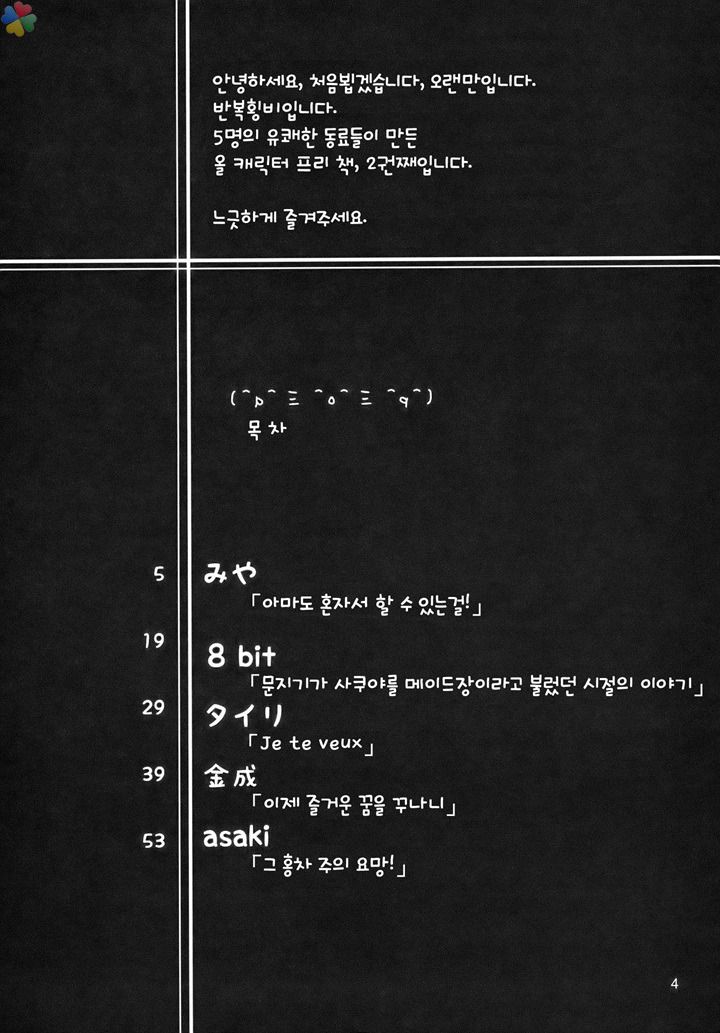 안녕하세요, 처음뵙겠습니다, 오랜만입니다.
반복횡비입니다.
5명의 유쾌한 동료들이 만든
올 캐릭터 프리 책, 2권째입니다.
느긋하게 즐겨주세요.
(^p^ 三 ^o^ 三 ^q^)
목차
5 みや
「아마도 혼자서 할 수 있는걸!」
19 8 bit
「문지기가 사쿠야를 메이드장이라고 불렀던 시절의 이야기」
29 タイリ
「Je te veux」
39 金成
「이제 즐거운 꿈을 꾸나니」
53 asaki
「그 홍차 주의 요망!」
4